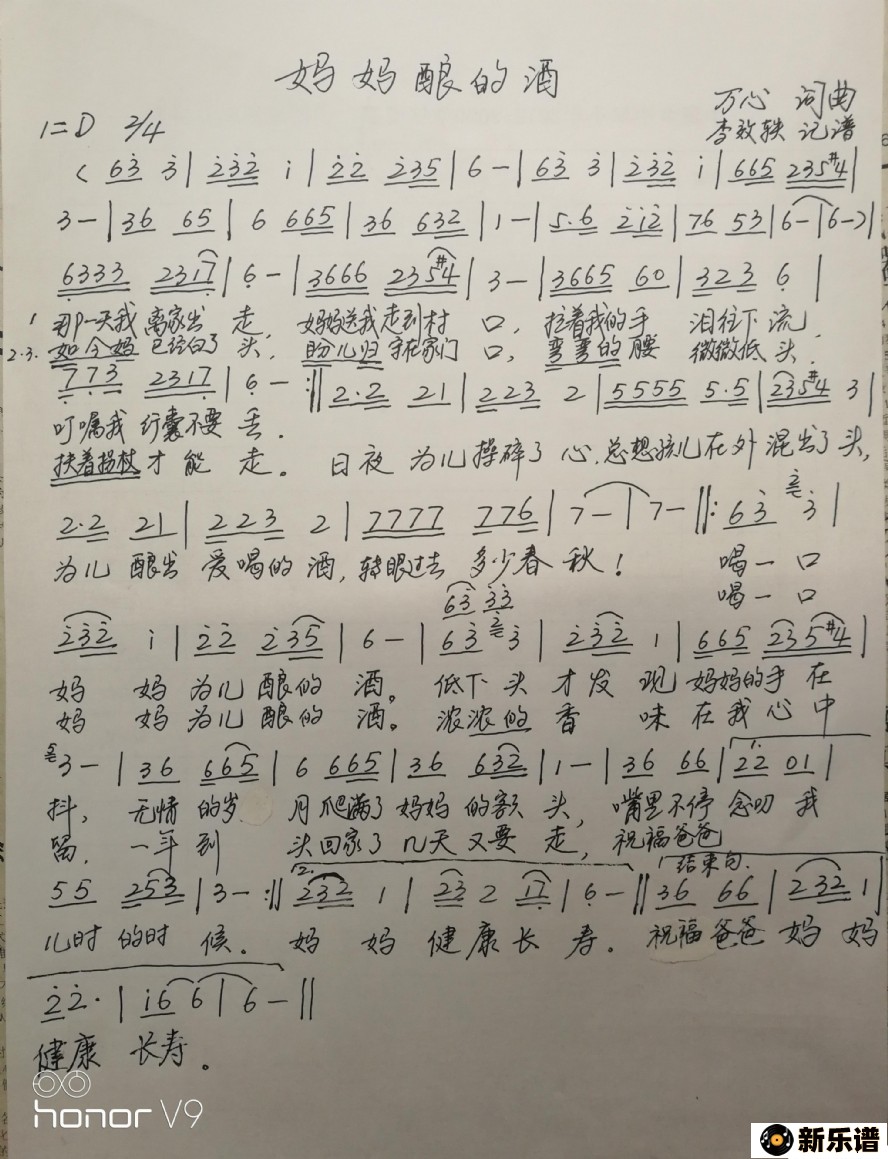 妈妈酿的酒
万心 词曲
1=D 2/4
李效轶 记谱
( 6̲3̲̇ 3̇ | 2̇3̇2̇ i | 2̇2̇ 2̇35 | 6 - | 63̇ 3̇ | 2̇3̇2̇ i | 665 235#4 |
3 - | 36 65 | 6 665 | 36 632 | 1 - | 5.6 2̇i2̇ | 76 53 | 6 - | 6 - ) |
6333 2317 | 6 - | 3666 235#4 | 3 - | 3665 60 | 323 6 |
1 那一天我 离家出 走, 妈妈送我走到村 口, 拉着我的手 泪往下流
2.3. 如今妈 已经白了 头, 盼儿归 守在家门 口, 弯弯的 腰 微微低 头.
773 2317 | 6 - :|| 2.2 21 | 223 2 | 5555 5.5 | 235#4 3 |
叮嘱我 行囊不要 丢.
扶着拐杖才 能 走。 日夜 为儿 操碎了 心, 总想孩儿在外 混出了头,
2.2 21 | 223 2 | 7777 776 | 7 - | 7 - ||: 63̇ 3̇ |
为儿 酿出 爱喝的 酒, 转眼过去 多少春 秋! 喝一 口
喝一 口
63̇ 3̇3̇
2̇3̇2̇ i | 2̇2̇ 2̇35 | 6 - | 63̇ 3̇ | 2̇3̇2̇ 1 | 665 235#4 |
妈 妈 为儿 酿的 酒。 低下 头 才发 现 妈妈的手 在
妈 妈 为儿 酿的 酒。 浓浓的 香 味 在我心中
3 - | 36 665 | 6 665 | 36 632 | 1 - | 36 66 | 1. 22 01 |
抖, 无情 的岁 月爬满了 妈妈 的额 头, 嘴里不停 念叨 我
留, 一年 到 头回家了 几天 又要 走, 祝福爸爸
结束句.
55 253 | 3 - :|| 2. 232 1 | 23 2 17 | 6 - || 36 66 | 232 1 |
儿时 的时 候. 妈 妈 健康 长 寿. 祝福爸爸 妈 妈
2̇2̇. | i6 6 | 6 - ||
健康 长寿。
honor V9
新乐谱